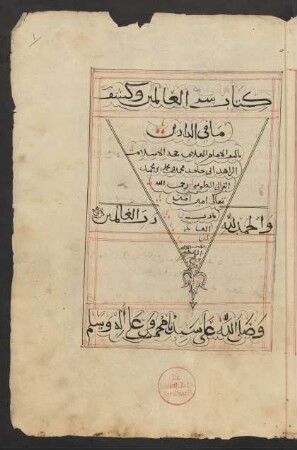 كتاب سر العالمين وكشف
ما في الدارين
تاليف الامام العلامه حجة الاسلام
الزاهد ابي حامد محمد بن محمد بن محمد
الغزالي الطوسي رحمه الله
تعالى امين امين
والحمد لله رب العالمين
وصلى الله على سيدنا محمد وعلى اله وسلم